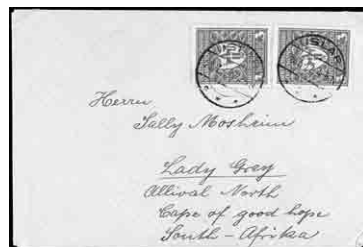 Herrn
Sally Mosheim
Lady Grey
Allival North
Cape of good hope
South-Afrika